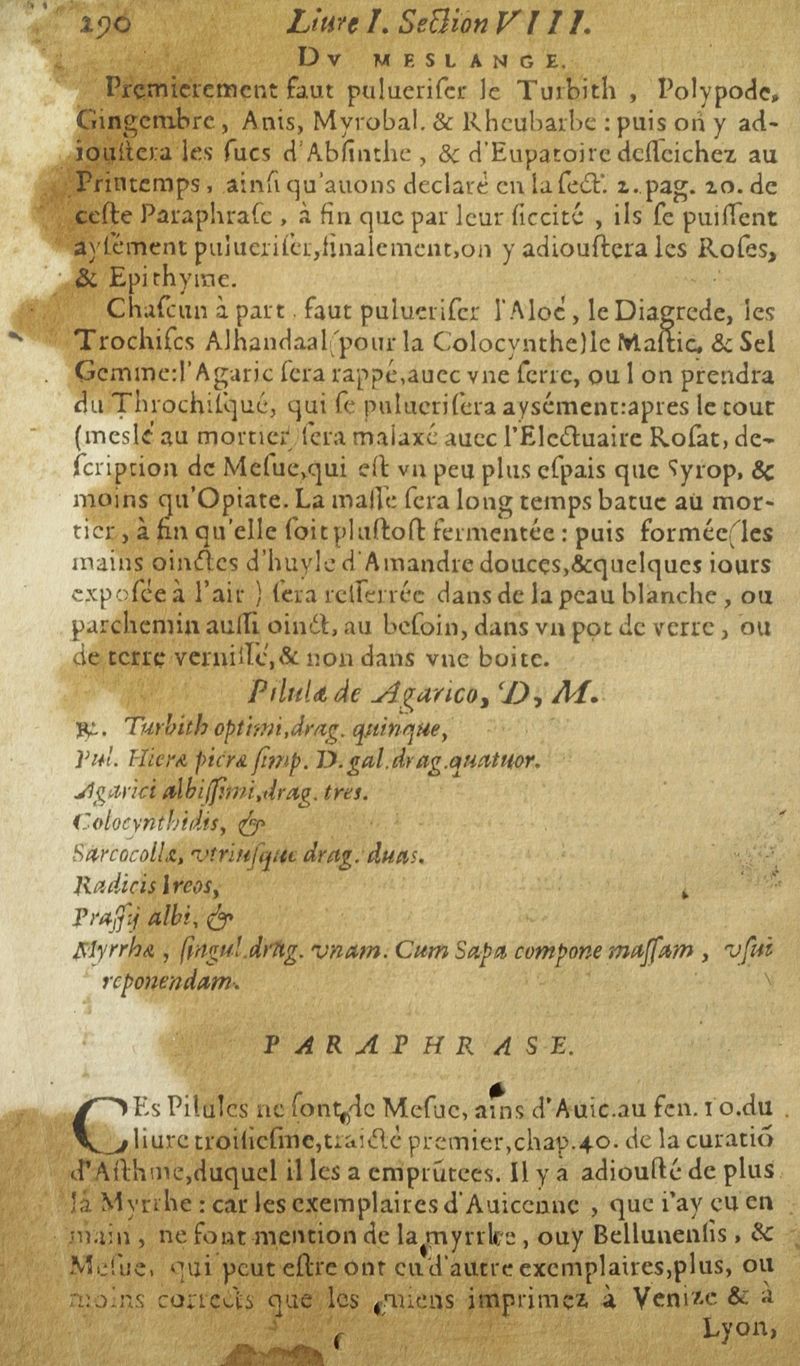 190 Liure I. Section VIII.
Dv MESLANGE.
Premierement faut puluerifer le Turbith , Polypode,
Gingembre , Anis, Myrobal. & Rheubarbe : puis on y ad-
iouſtera les ſucs d'Abſinthe , & d'Eupatoire deſſeichez au
Printemps , ainſi qu'auons declaré en la ſect. 2. pag. 20. de
ceſte Paraphraſe , à fin que par leur ſiccité , ils ſe puiſſent
ayſément pulueriſer, finalement, on y adiouſtera les Roſes,
& Epithyme.
Chaſcun à part . faut pulueriſer l'Aloé , le Diagrede, les
Trochiſcs Alhandaal (pour la Colocynthe) le Maſtic, & Sel
Gemme: l'Agaric ſera rappé, auec vne ſerre, ou l on prendra
du Throchiſqué, qui ſe pulueriſera aysément: apres le tout
(meslé au mortier) ſera malaxé auec l'Electuaire Roſat, de-
ſcription de Meſue, qui eſt vn peu plus eſpais que Syrop, &
moins qu'Opiate. La maſſe ſera long temps batue au mor-
tier , à fin qu'elle ſoit pluſtoſt fermentée : puis formée (les
mains oinctes d'huyle d'Amandre douces, & quelques iours
expoſée à l'air ) ſera reſſerrée dans de la peau blanche , ou
parchemin auſſi oinct, au beſoin, dans vn pot de verre , ou
de terre verniſſé, & non dans vne boite.
Pilulæ de Agarico, D, M.
℞. Turbith optimi, drag. quinque,
Pul. Hieræ picræ ſimp. D. gal. drag. quatuor.
Agarici albiſſimi, drag. tres.
Colocynthidis, &
Sarcocollæ, vtriuſque drag. duas.
Radicis Ireos,
Praſſij albi, &
Myrrhæ , ſingul. drag. vnam. Cum Sapa compone maſſam , vſui
reponendam.
PARAPHRASE.
CEs Pilules ne ſont de Meſue, ains d'Auic. au fen. 10. du
liure troiſieſme, traicté premier, chap. 40. de la curatiõ
d'Aſthme, duquel il les a emprũtees. Il y a adiouſté de plus
la Myrrhe : car les exemplaires d'Auicenne , que i'ay eu en
main , ne font mention de la myrrhe , ouy Bellunenſis , &
Meſue, qui peut eſtre ont eu d'autre exemplaires, plus, ou
moins corrects que les miens imprimez à Venize & à
Lyon,